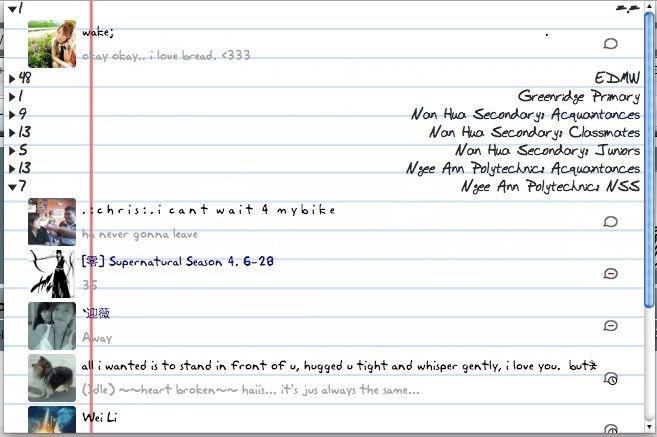 1 -.-
wake;
okay okay.. i love bread. <333
48 EDMW
1 Greenridge Primary
9 Nan Hua Secondary: Acquaintances
13 Nan Hua Secondary: Classmates
5 Nan Hua Secondary: Juniors
13 Ngee Ann Polytechnic: Acquaintances
7 Ngee Ann Polytechnic: NSS
.:chris:. i cant wait 4 mybike
ha never gonna leave
[零] Supernatural Season 4. 6-20
35
`迎薇
Away
all i wanted is to stand in front of u, hugged u tight and whisper gently, i love you.
(Idle) ~~heart broken~~ haiis... it's jus always the same...
Wei Li